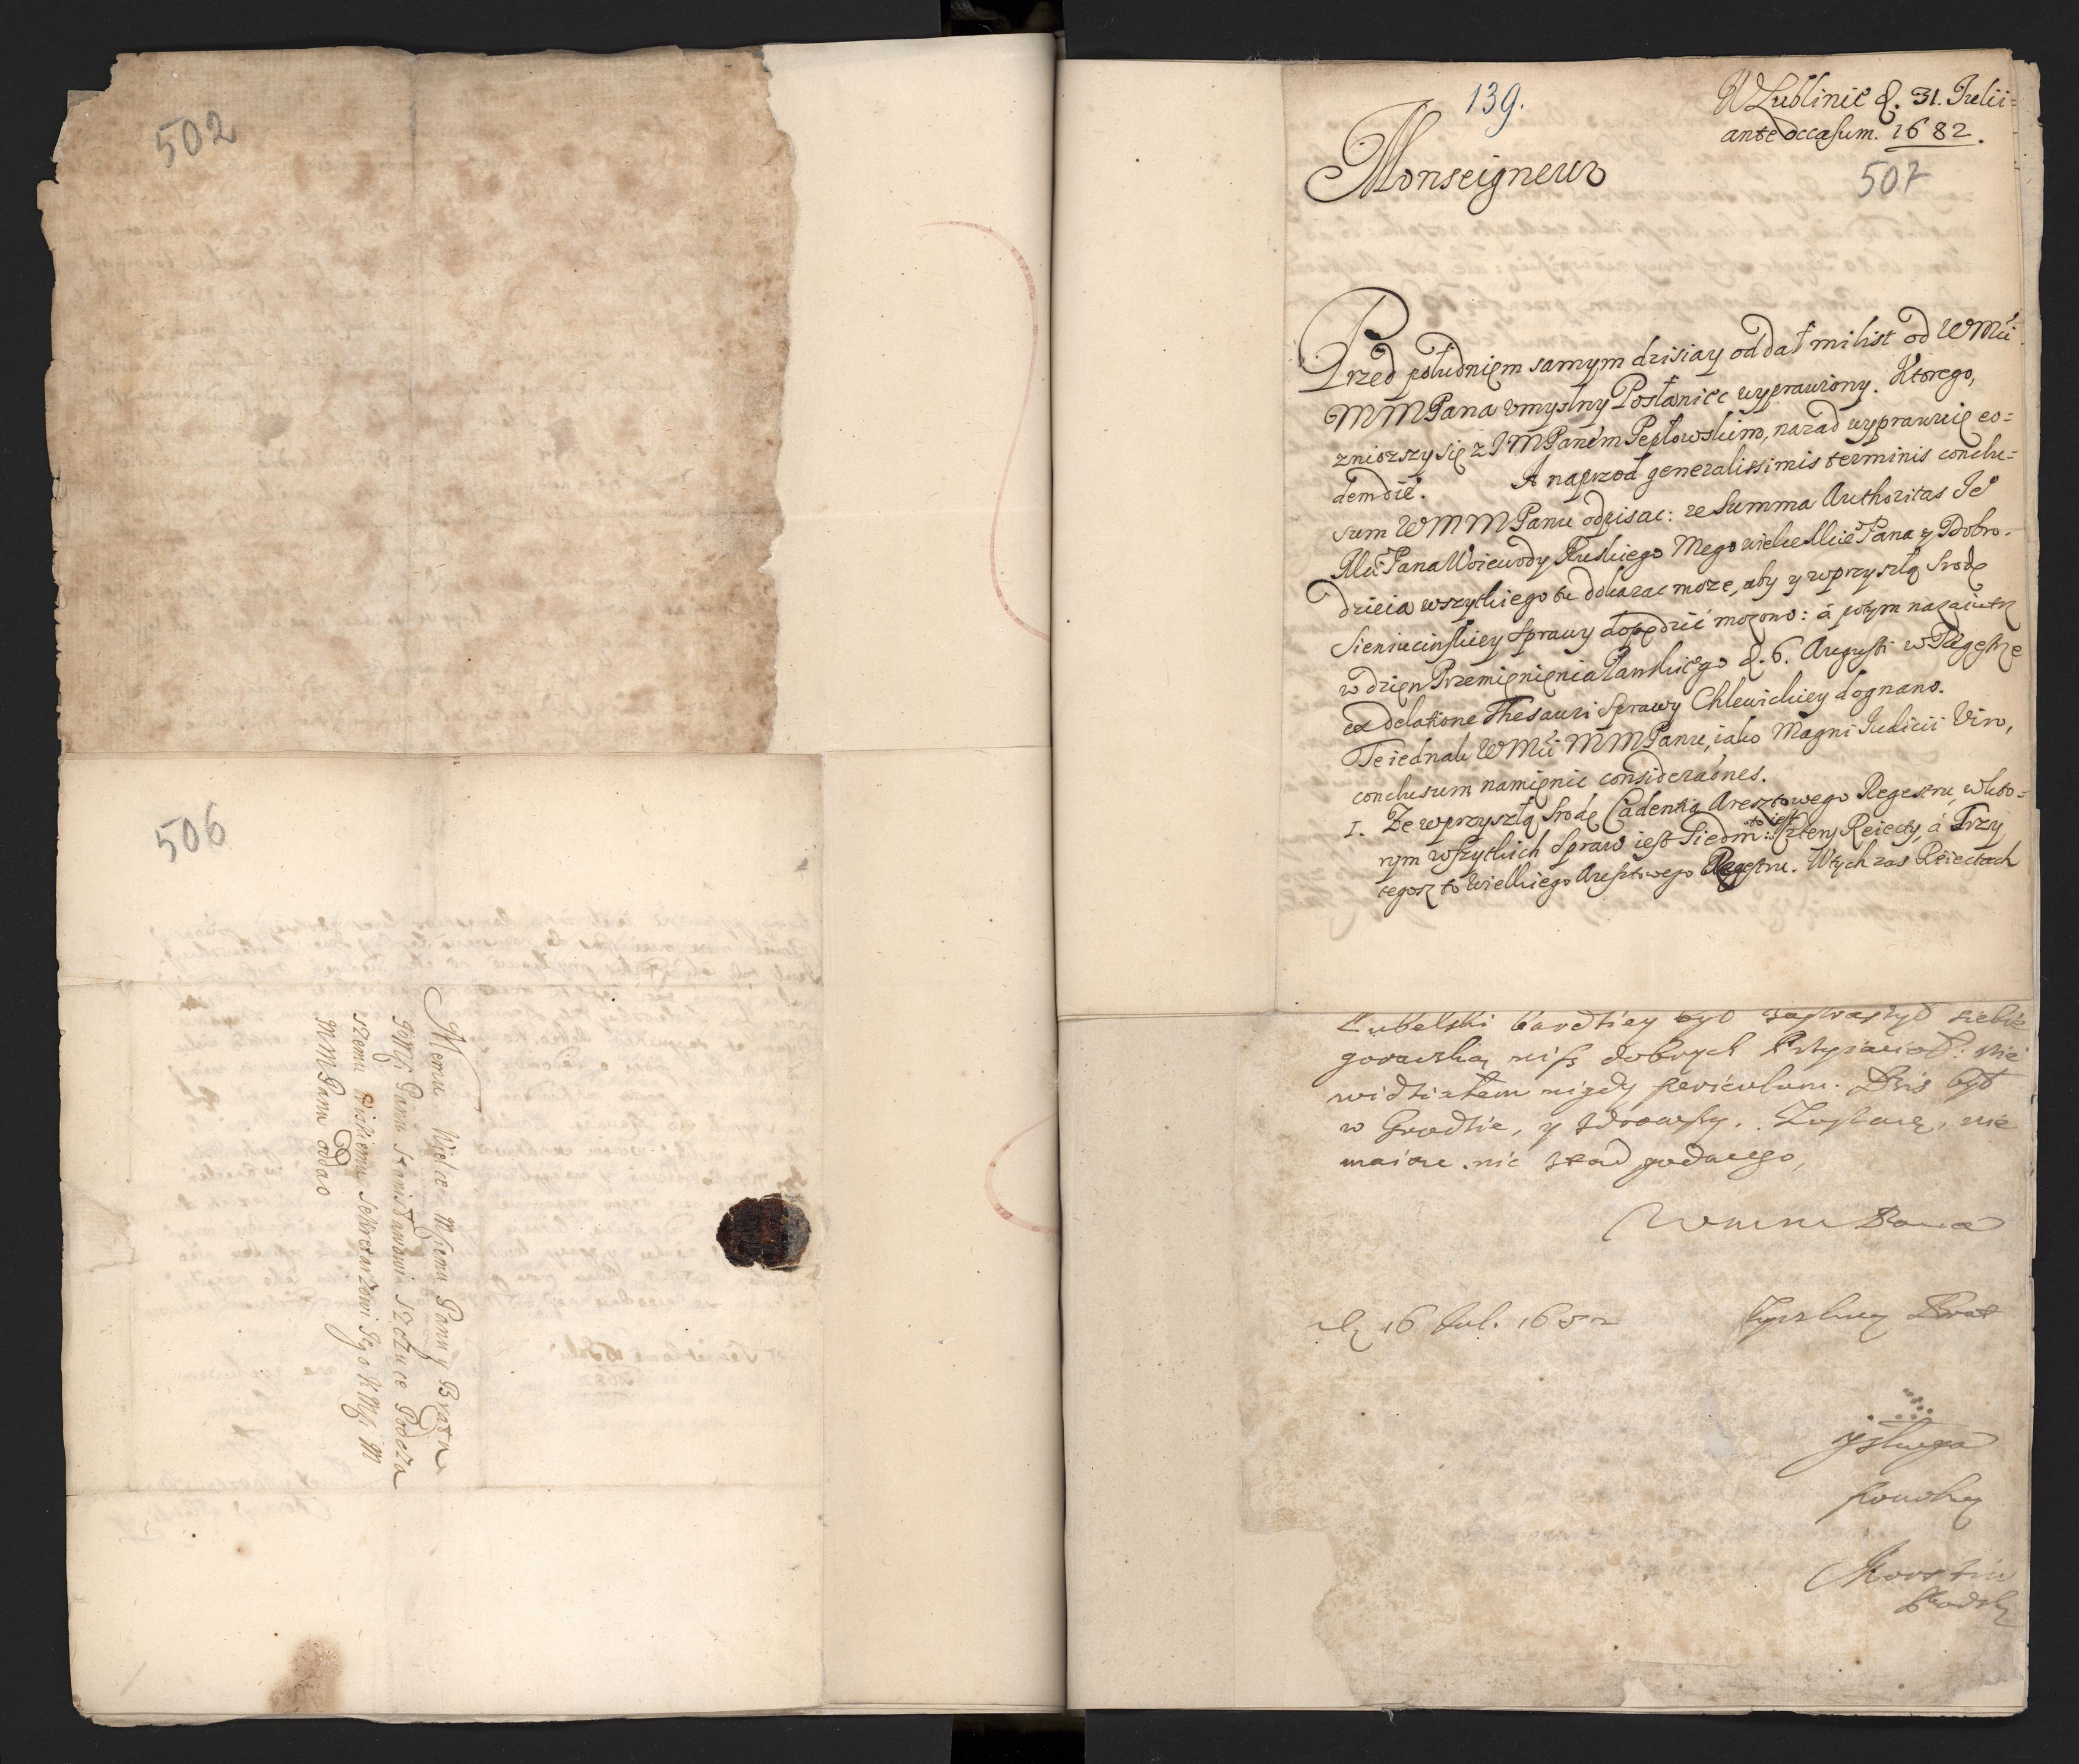 502
506
Memu Wielce Mſiemu Panu y Bratu
JeMſi Panu Stanisławowi Szczuce Podcza
szemu Wiskiemu Sekretarzowi Jego K Mſi M
M M Panu oddac
139.
W Lublinie d. 31. Julii
ante occasum. 1682.
507
Monseigneur
Przed południem samym dzisiay oddał mi list od WMci
MMPana vmyslny Posłaniec wyprawiony. Ktorego,
zniozszy się z JMPanem Pepłowskim, nazad wyprawuię eo=
dem die. A naprzod generalissimis terminis conclu=
sum WMMPanu odpisac: ze Summa Authoritas Je
Mci Pana Woiewody Ruskiego Mego wielce Mcie Pana y Dobro.
dzieia wszytkiego tu dokazac moze, aby y w przyszłą Srodę
Sieniucinskiey Sprawy dopędzić mozono: á potym nazaiutrz
w dzien Przemięnięnia Panskiego d. 6. Augusti w Regestrze
ex delatione Thesauri Sprawy Chlewickiey dognano.
Te iednak WMci MMPanu, iako Magni Iudicii Viro,
conclusum namięnic considerationes.
1. Ze w przyszłą Srodę Cadentia Aresztowego Regestru, w kto=
rym wszytkich Spraw iest Siedm: to iest Cztery Reiecty, á Trzy
tegosz to Wielkiego Aresztowego Regestru. W tych zas Reiectach
Lubelski bardziey był siebie
nisz dobrych Przyiacioł: nie
widziałem nigdy periculum. Dzis był
w Grodzie, y zdrowszy. Zostaię, nie
maiąc nic godnego,
WMMM Pana
16 Jul. 1682
Zyczliwy Brat
y sługa
powolny